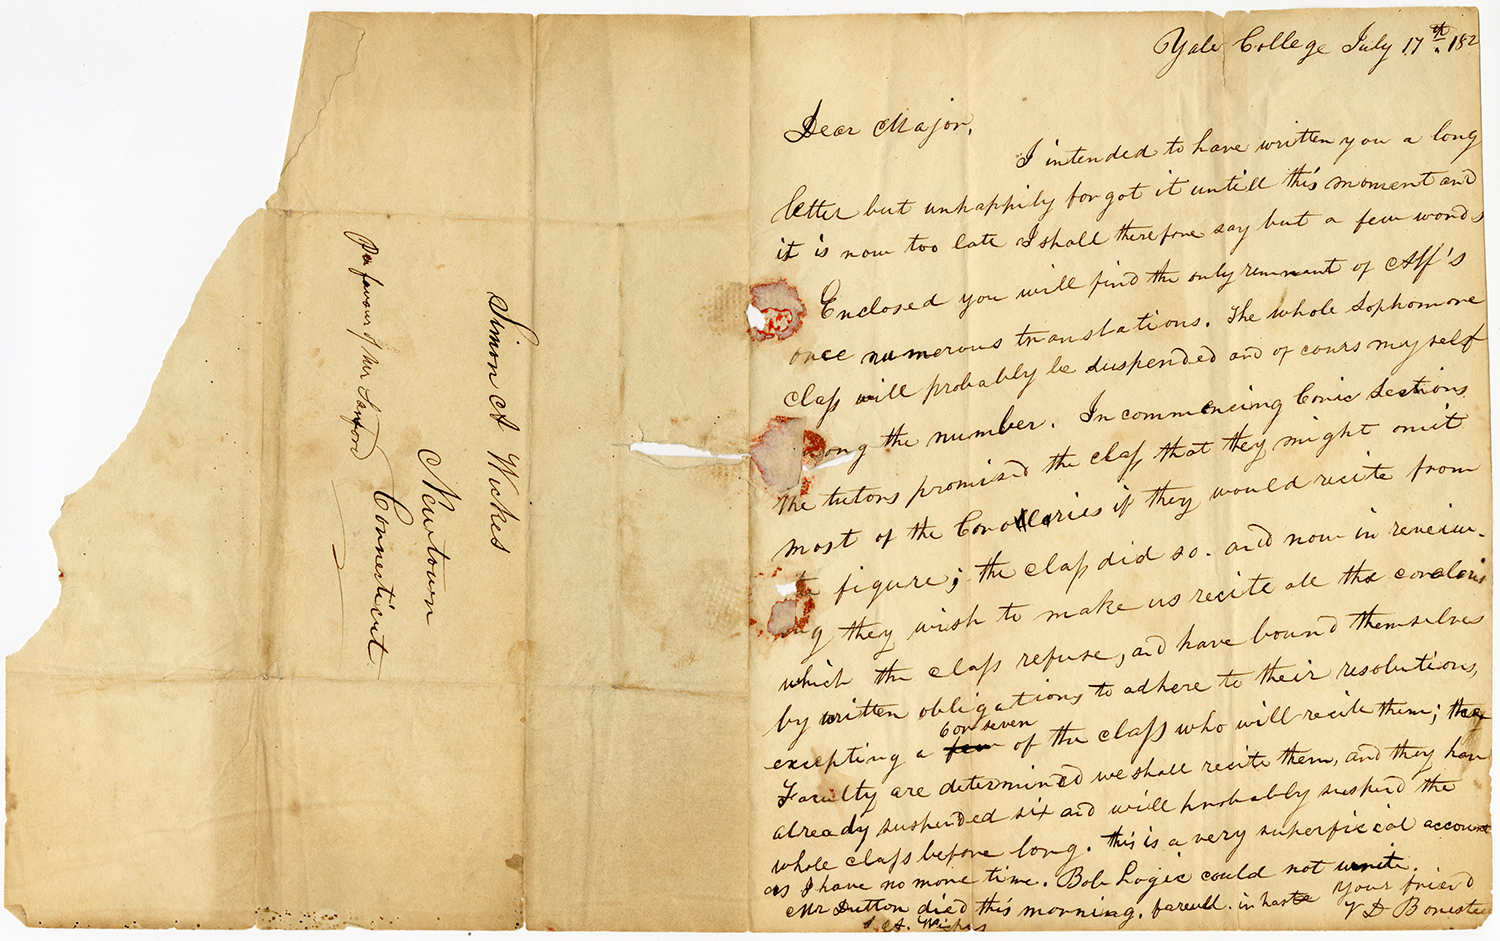 Per favour of Mr Sanford
Simon A Wickes
Newtown
Connecticut
Yale College July 17th 182
Dear Major,
I intended to have written you a long
letter but unhappily forgot it untill this moment and
it is now too late I shall therefore say but a few words
Enclosed you will find the only remnant of Aff's
once numerous translations. The whole Sophomore
class will probably be suspended and of cours myself
ong the number. In commencing Conic Sections
the tutors promised the class, that they might omit
most of the Corollaries if they would recite from
figure; the class did so. and now in reveiw-
g they wish to make us recite all the corolaris
which the class refuse, and have bound themselves
by written obligations to adhere to their resolutions,
excepting a 6 or seven of the class who will recite them; the
Faculty are determined we shall recite them, and they have
already suspended six and will probably suspend the
whole class before long. this is a very superficial account
as I have no more time. Bob Logic could not write.
Mr Dutton died this morning. farewell. in haste Your friend
S. A. Wickes Y D Bonestee